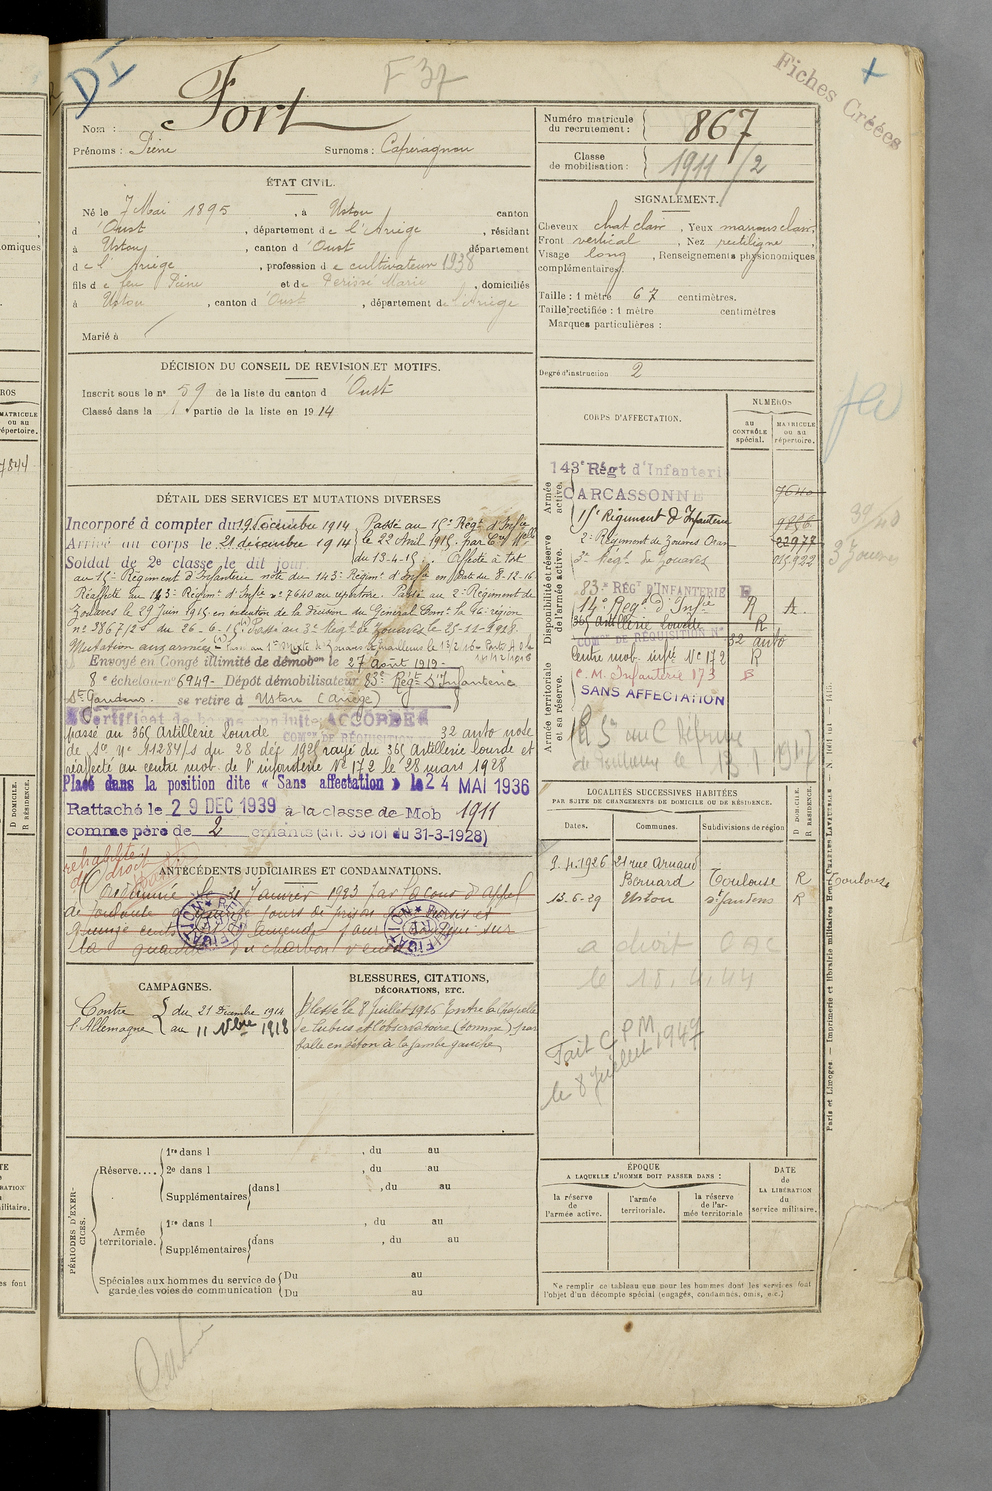 DI
F 37
Fiches Créées
+
Nom : Fort
Prénoms : Pierre Surnoms : Caperagnou
Numéro matricule du recrutement : 867
Classe de mobilisation : 1911 /2
ÉTAT CIVIL.
Né le 7 Mai 1895, à Ustou canton
d'Oust, département de l'Ariège, résidant
à Ustou, canton d'Oust département
de l'Ariège, profession de cultivateur 1938
fils de feu Pierre et de Derissé Marie, domiciliés
à Ustou, canton d'Oust, département de l'Ariège
Marié à
SIGNALEMENT.
Cheveux chat clair, Yeux marrons clair,
Front vertical, Nez rectiligne,
Visage long, Renseignements physionomiques
complémentaires,
Taille : 1 mètre 67 centimètres.
Taille rectifiée : 1 mètre centimètres
Marques particulières :
Degré d'instruction 2
DÉCISION DU CONSEIL DE REVISION ET MOTIFS.
Inscrit sous le n° 59 de la liste du canton d'Oust
Classé dans la 1e partie de la liste en 1914
DÉTAIL DES SERVICES ET MUTATIONS DIVERSES
Incorporé à compter du 19 décembre 1914
Arrivé au corps le 21 décembre 1914
Soldat de 2e classe le dit jour
Passé au 15e Régt d'Infie
le 22 Avril 1915. par
du 13-4-15. Affecté à tort
au 15e Régiment d'Infanterie note du 143e Régimt d'Infie en date du 8-12-16
Réaffecté au 143e Régimt d'Infie n° 7640 au répertoire. Passé au 2e Régiment de
Zouaves le 29 Juin 1915 en exécution de la Décision du Général Comt la 16e région
n° 3867/2S du 26-6-15 Passé au 3e Régt de Zouaves le 25-11-1918.
Mutation aux armées
Envoyé en Congé illimité de démobon le 27 Août 1919-
8e échelon n° 6949- Dépôt démobilisateur 83e Régt d'Infanterie
St Gaudens. se retire à Ustou (Ariège)
Certificat de bonne conduite ACCORDÉ
passé au 36e Artillerie lourde 32 auto note
de Sce N° 91284/S du 28 déc 1925 rayé du 36e Artillerie lourde et
réaffecté au centre mob. de l'infanterie N° 172 le 28 mars 1928
Placé dans la position dite « Sans affectation » le 24 MAI 1936
Rattaché le 29 DEC 1939 à la classe de Mob 1911
comme père de 2 enfants (art. 58 loi du 31-3-1928)
CORPS D'AFFECTATION.
NUMÉROS
au CONTRÔLE spécial.
MATRICULE ou au répertoire.
Armée active.
143e Régt d'Infanterie
CARCASSONNE
7640
15e Régiment d'Infanterie
9856
Disponibilité et réserve de l'armée active.
2e Régiment de Zouaves Oran
22978
3e Régt de Zouaves
015.922
83e RÉGt D'INFANTERIE R
14e Regt d'Infie R
36e Artillerie lourde R
32 auto
Centre mob. infie N° 172 R
C. M. Infanterie 173
SANS AFFECTATION
Armée territoriale et sa réserve.
LOCALITÉS SUCCESSIVES HABITÉES
PAR SUITE DE CHANGEMENTS DE DOMICILE OU DE RÉSIDENCE.
Dates. Communes. Subdivisions de région
D DOMICILE. R RÉSIDENCE.
9.4.1926 21 rue Arnaud
Bernard Toulouse R Toulouse
13.6.29 Ustou St Gaudens R
a droit CAC
le 18.4.44
Fait C.P.M
le 8 Juillet 1947
réhabilité
de droit
ANTÉCÉDENTS JUDICIAIRES ET CONDAMNATIONS.
Condamné le 21 Janvier 1923 par la cour d'Appel
de Toulouse à quinze jours de prison avec sursis et
quinze cents d'amende pour sur
la quantité du charbon vendu
CAMPAGNES.
Contre l'Allemagne
du 21 Décembre 1914
au 11 Nbre 1918
BLESSURES, CITATIONS, DÉCORATIONS, ETC.
Blessé le 8 Juillet 1916 Entre la chapelle
et l'observatoire (Somme) par
balle en séton à la jambe gauche
PÉRIODES D'EXERCICES.
Réserve.... 1re dans l , du au
2e dans l , du au
Supplémentaires dans l , du au
Armée territoriale. 1re dans l , du au
Supplémentaires dans , du au
Spéciales aux hommes du service de garde des voies de communication
Du au
Du au
ÉPOQUE
A LAQUELLE L'HOMME DOIT PASSER DANS :
la réserve de l'armée active.
l'armée territoriale.
la réserve de l'armée territoriale
DATE de LA LIBÉRATION du service militaire.
Ne remplir ce tableau que pour les hommes dont les services font
l'objet d'un décompte spécial (engagés, condamnés, omis, etc.)
Paris et Limoges. — Imprimerie et librairie militaires Henri CHARLES-LAVAUZELLE